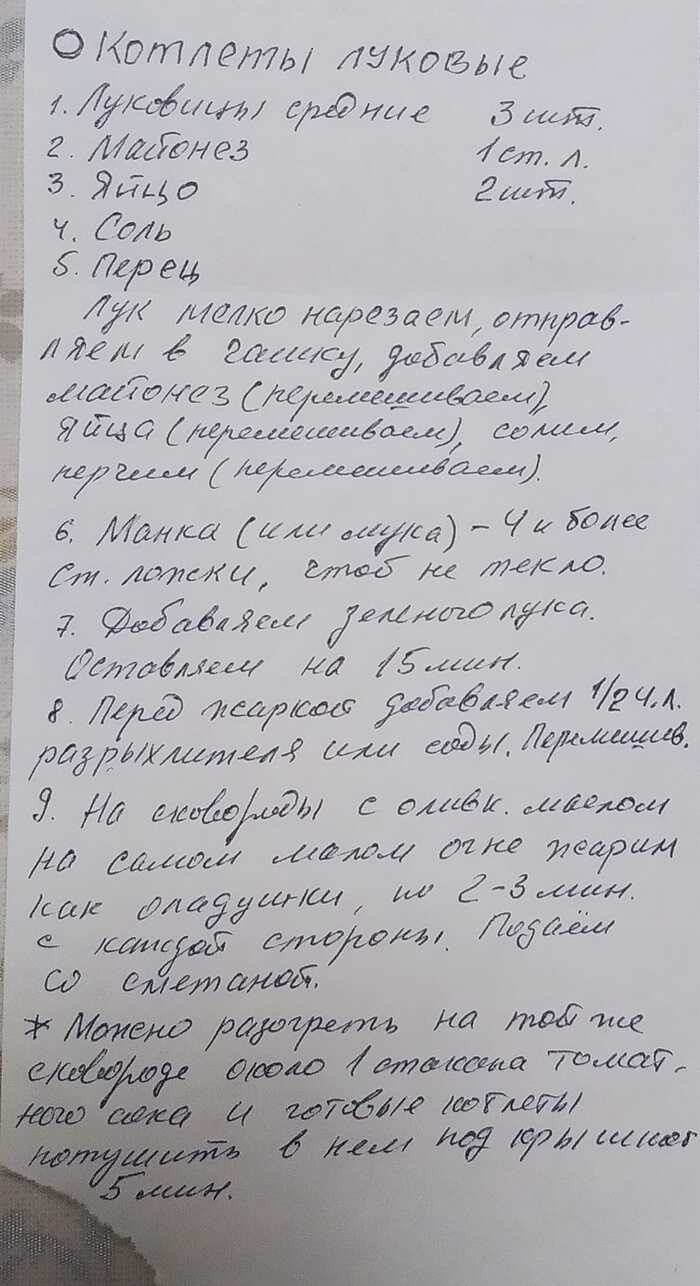 Котлеты луковые
1. Луковицы средние 3 шт.
2. Майонез 1 ст. л.
3. Яйцо 2 шт.
4. Соль
5. Перец
Лук мелко нарезаем, отправ-
ляем в чашку, добавляем
майонез (перемешиваем),
яйца (перемешиваем), солим,
перчим (перемешиваем).
6. Манка (или мука) - 4 и более
ст. ложки, чтоб не текло.
7. Добавляем зеленого лука.
Оставляем на 15 мин.
8. Перед жаркой добавляем 1/2 ч.л.
разрыхлителя или соды. Перемешив.
9. На сковороды с оливк. маслом
на самом малом огне жарим
как оладушки, по 2-3 мин.
с каждой стороны. Подаём
со сметаной.
* Можно разогреть на той же
сковороде около 1 стакана томат-
ного сока и готовые котлеты
потушить в нем под крышкой
5 мин.